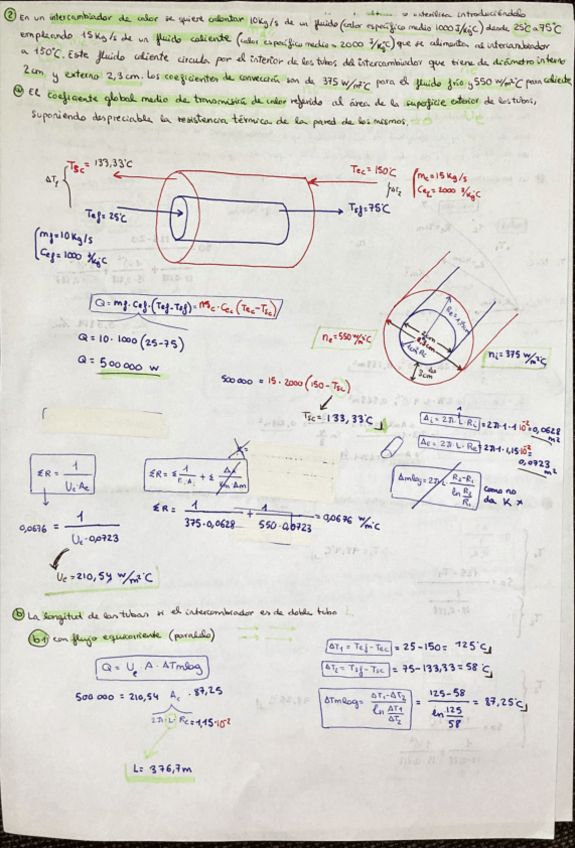 ② En un intercambiador de calor se quiere calentar 10Kg/s de un fluido (calor específico medio 1000 J/kgºC) desde 25ºC a 75ºC
empleando 15 Kg/s de un fluido caliente (calor específico medio = 2000 J/kgºC) que se alimenta al intercambiador
a 150ºC. Este fluido caliente circula por el interior de los tubos del intercambiador que tiene de diámetro interno
2cm y externo 2,3 cm. Los coeficientes de convección son de 375 W/m²ºC para el fluido frío y 550 W/m²ºC para caliente
ⓐ El coeficiente global medio de transmisión de calor referido al área de la superficie exterior de los tubos,
suponiendo despreciable la resistencia térmica de la pared de los mismos.
Tsc = 133,33ºC
Tec = 150ºC
mc = 15 Kg/s
Cec = 2000 J/kgºC
ΔT1
ΔT2
Tef = 25ºC
Tsf = 75ºC
mf = 10 Kg/s
Cef = 1000 J/kgºC
Q = mf · Cef · (Tef - Tsf) = mc · Cec (Tec - Tsc)
Q = 10 · 1000 (25-75)
Q = 500000 W
he = 550 W/m²ºC
hi = 375 W/m²ºC
2cm
3cm
500000 = 15 · 2000 (150 - Tsc)
Tsc = 133,33ºC
Ai = 2π · L · Ri = 2π · 1 · 1 10⁻² = 0,0628 m²
Ae = 2π · L · Re = 2π · 1 · 1,15 10⁻² = 0,0723 m²
ΣR = 1 / Ue · Ae
ΣR = Σ 1 / h · A + Σ Δx / Km · Am
Amlog = 2π L · Re - Ri / ln Re / Ri
como no da K x
0,0676 = 1 / Ue · 0,0723
ΣR = 1 / 375 · 0,0628 + 1 / 550 · 0,0723 = 0,0676 W/m²C
Ue = 210,54 W/m²ºC
ⓑ La longitud de los tubos si el intercambiador es de doble tubo
b.1 con flujo equicorriente (paralelo)
Q = Ue · A · ΔTmlog
ΔT1 = Tef - Tec = 25 - 150 = 125ºC
ΔT2 = Tsf - Tsc = 75 - 133,33 = 58ºC
500000 = 210,54 Ae · 87,25
2π · L · Re = 1,15 · 10⁻²
ΔTmlog = ΔT1 - ΔT2 / ln ΔT1 / ΔT2 = 125 - 58 / ln 125 / 58 = 87,25ºC
L = 376,7m